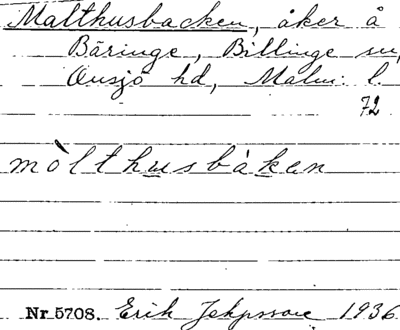 Malthusbacken, åker å
Bäringe, Billinge sn,
Onsjö hd, Malm. l.
72
mòlthusbàken
Nr 5708. Erik 1936